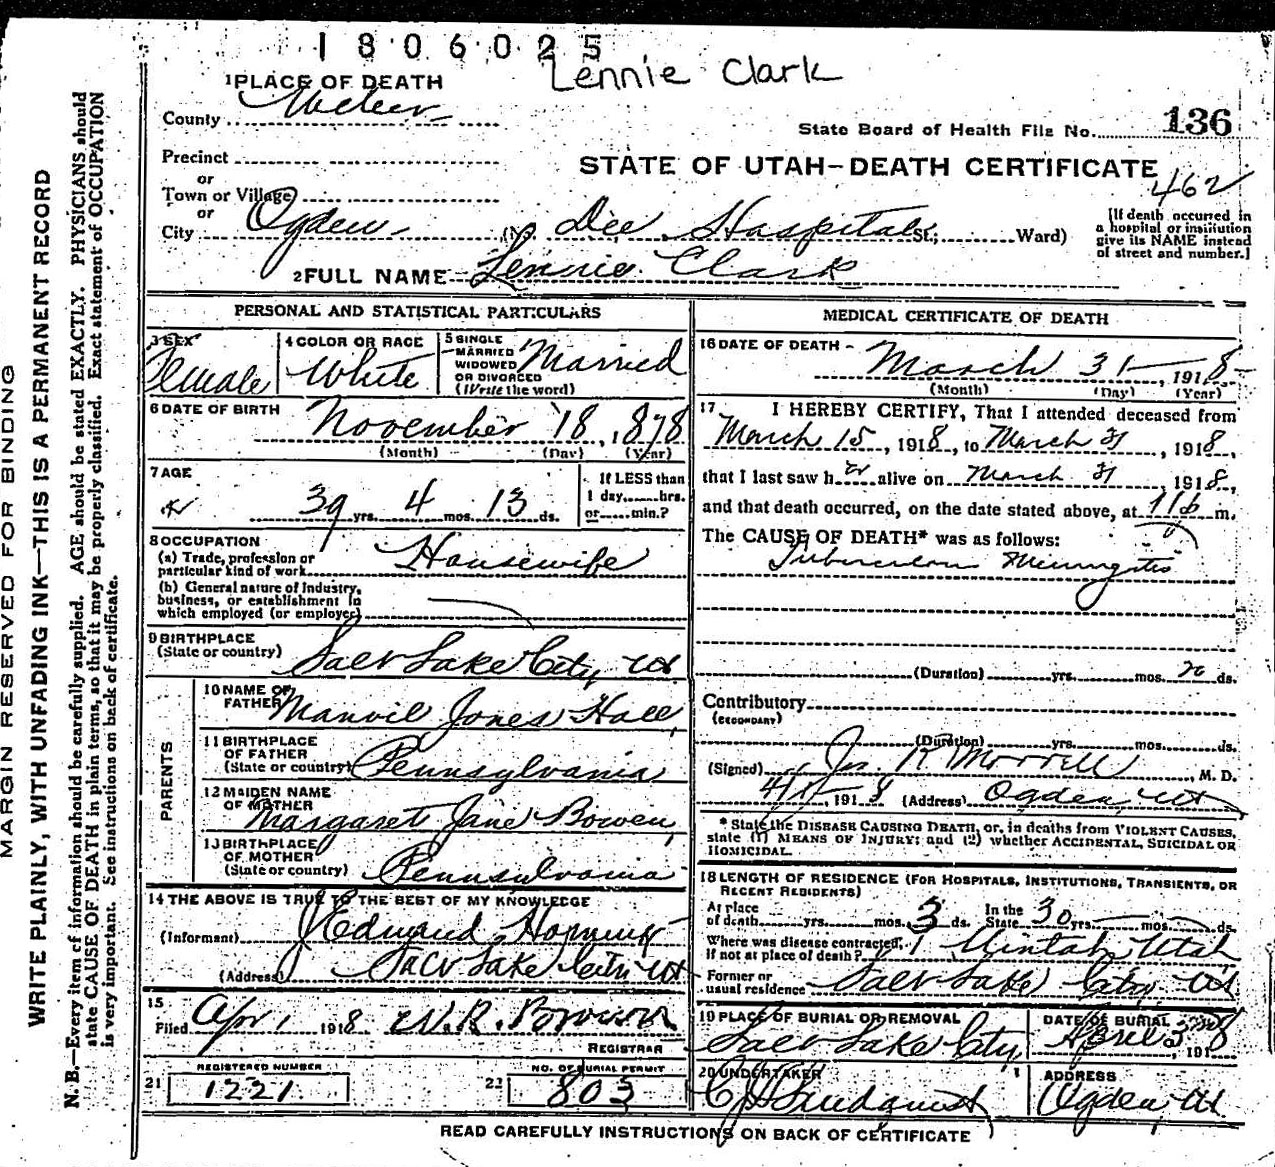 1806025
Lennie Clark
1 PLACE OF DEATH
County Weber
State Board of Health File No. 136
Precinct
STATE OF UTAH—DEATH CERTIFICATE
or
462
Town or Village
or
City Ogden (No. Dee Hospital St.; Ward)
[If death occurred in
a hospital or institution
give its NAME instead
of street and number.]
2 FULL NAME Lennie Clark
PERSONAL AND STATISTICAL PARTICULARS
3 SEX Female
4 COLOR OR RACE White
5 SINGLE
MARRIED
WIDOWED
OR DIVORCED
(Write the word) Married
6 DATE OF BIRTH
November 18, 1878
(Month) (Day) (Year)
7 AGE
39 yrs. 4 mos. 13 ds.
If LESS than
1 day, hrs.
or min.?
8 OCCUPATION
(a) Trade, profession or
particular kind of work Housewife
(b) General nature of Industry,
business, or establishment in
which employed (or employer)
9 BIRTHPLACE
(State or country) Salt Lake City Ut
PARENTS
10 NAME OF
FATHER Manvil Jones Hall
11 BIRTHPLACE
OF FATHER
(State or country) Pennsylvania
12 MAIDEN NAME
OF MOTHER Margaret Jane Bowen
13 BIRTHPLACE
OF MOTHER
(State or country) Pennsylvania
14 THE ABOVE IS TRUE TO THE BEST OF MY KNOWLEDGE
(Informant) Edmund
(Address) Salt Lake City Ut
15
Filed Apr 1 1918
REGISTRAR
REGISTERED NUMBER
21 1221
NO. OF BURIAL PERMIT
22 803
MEDICAL CERTIFICATE OF DEATH
16 DATE OF DEATH
March 31, 1918
(Month) (Day) (Year)
17 I HEREBY CERTIFY, That I attended deceased from
March 15, 1918, to March 31, 1918,
that I last saw h er alive on March 31 1918,
and that death occurred, on the date stated above, at m.
The CAUSE OF DEATH* was as follows:
Tubercular Meningitis
(Duration) yrs. mos. ds.
Contributory
(SECONDARY)
(Duration) yrs. mos. ds.
(Signed) Jos. R Morrell, M. D.
4/1, 1918 (Address) Ogden, Ut
* State the DISEASE CAUSING DEATH, or, in deaths from VIOLENT CAUSES,
state (1) MEANS OF INJURY; and (2) whether ACCIDENTAL, SUICIDAL OR
HOMICIDAL.
18 LENGTH OF RESIDENCE (FOR HOSPITALS, INSTITUTIONS, TRANSIENTS, OR
RECENT RESIDENTS)
At place
of death yrs. mos. 3 ds. In the
State 30 yrs. mos. ds.
Where was disease contracted,
If not at place of death? Uintah, Utah
Former or
usual residence Salt Lake City Ut
19 PLACE OF BURIAL OR REMOVAL
Salt Lake City
DATE OF BURIAL
April 3, 1918
20 UNDERTAKER
Lindquist
ADDRESS
Ogden, Ut
READ CAREFULLY INSTRUCTIONS ON BACK OF CERTIFICATE
MARGIN RESERVED FOR BINDING
WRITE PLAINLY, WITH UNFADING INK—THIS IS A PERMANENT RECORD
N. B.—Every item of information should be carefully supplied. AGE should be stated EXACTLY. PHYSICIANS should
state CAUSE OF DEATH in plain terms, so that it may be properly classified. Exact statement of OCCUPATION
is very important. See instructions on back of certificate.